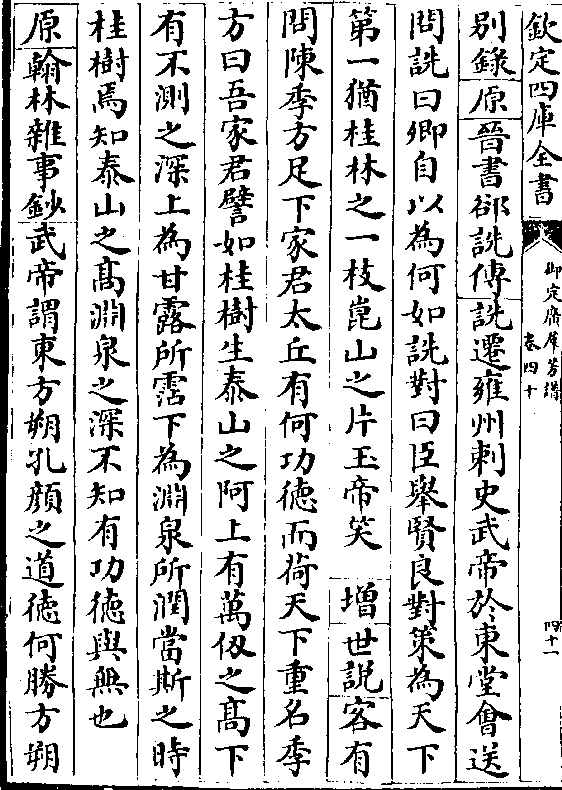 欽定四庫全書
御定廣羣芳譜
卷四十
四十一
別錄原晉書郤詵傳詵遷雍州刺史武帝於東堂㑹送
問詵曰卿自以為何如詵對曰臣舉賢良對策為天下
第一猶桂林之一枝崑山之片玉帝笑增世說客有
問陳季方足下家君太丘有何功徳而荷天下重名季
方曰吾家君譬如桂樹生泰山之阿上有萬仭之髙下
有不測之深上為甘露所霑下為淵泉所潤當斯之時
桂樹焉知泰山之髙淵泉之深不知有功徳與無也
原翰林雜事鈔武帝謂東方朔孔顔之道徳何勝方朔